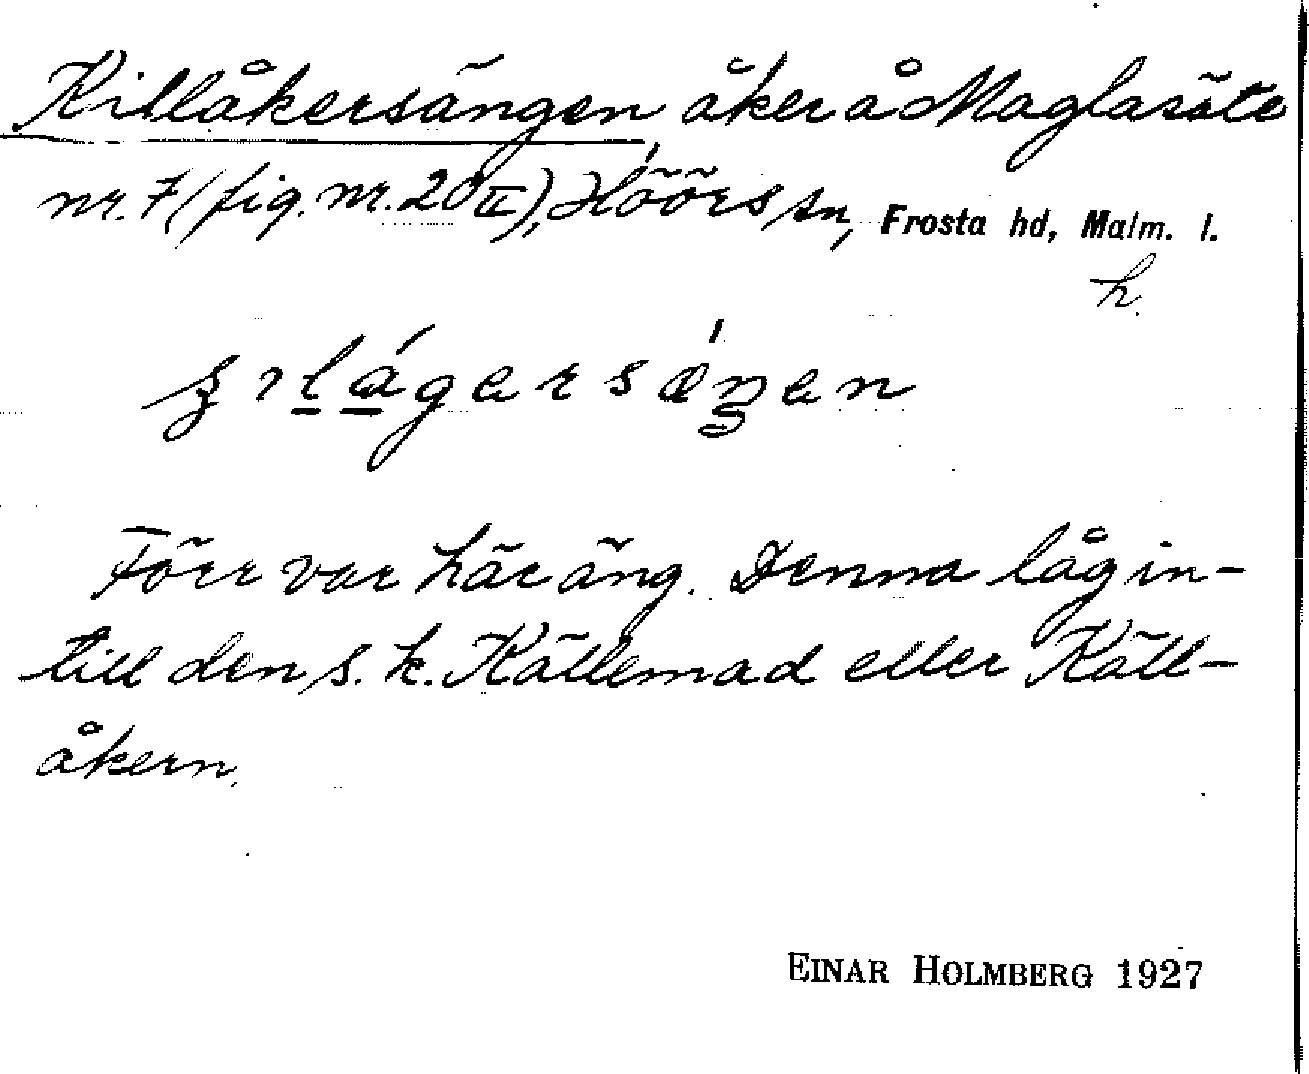 Killåkersängen, åker å Maglasäte
nr. 7 (fig. nr. 20 II), Höörs sn, Frosta hd, Malm. l.
h.
Förr var här äng. Denna låg in-
till den s. k. Källemad eller Käll-
åkern.
EINAR HOLMBERG 1927